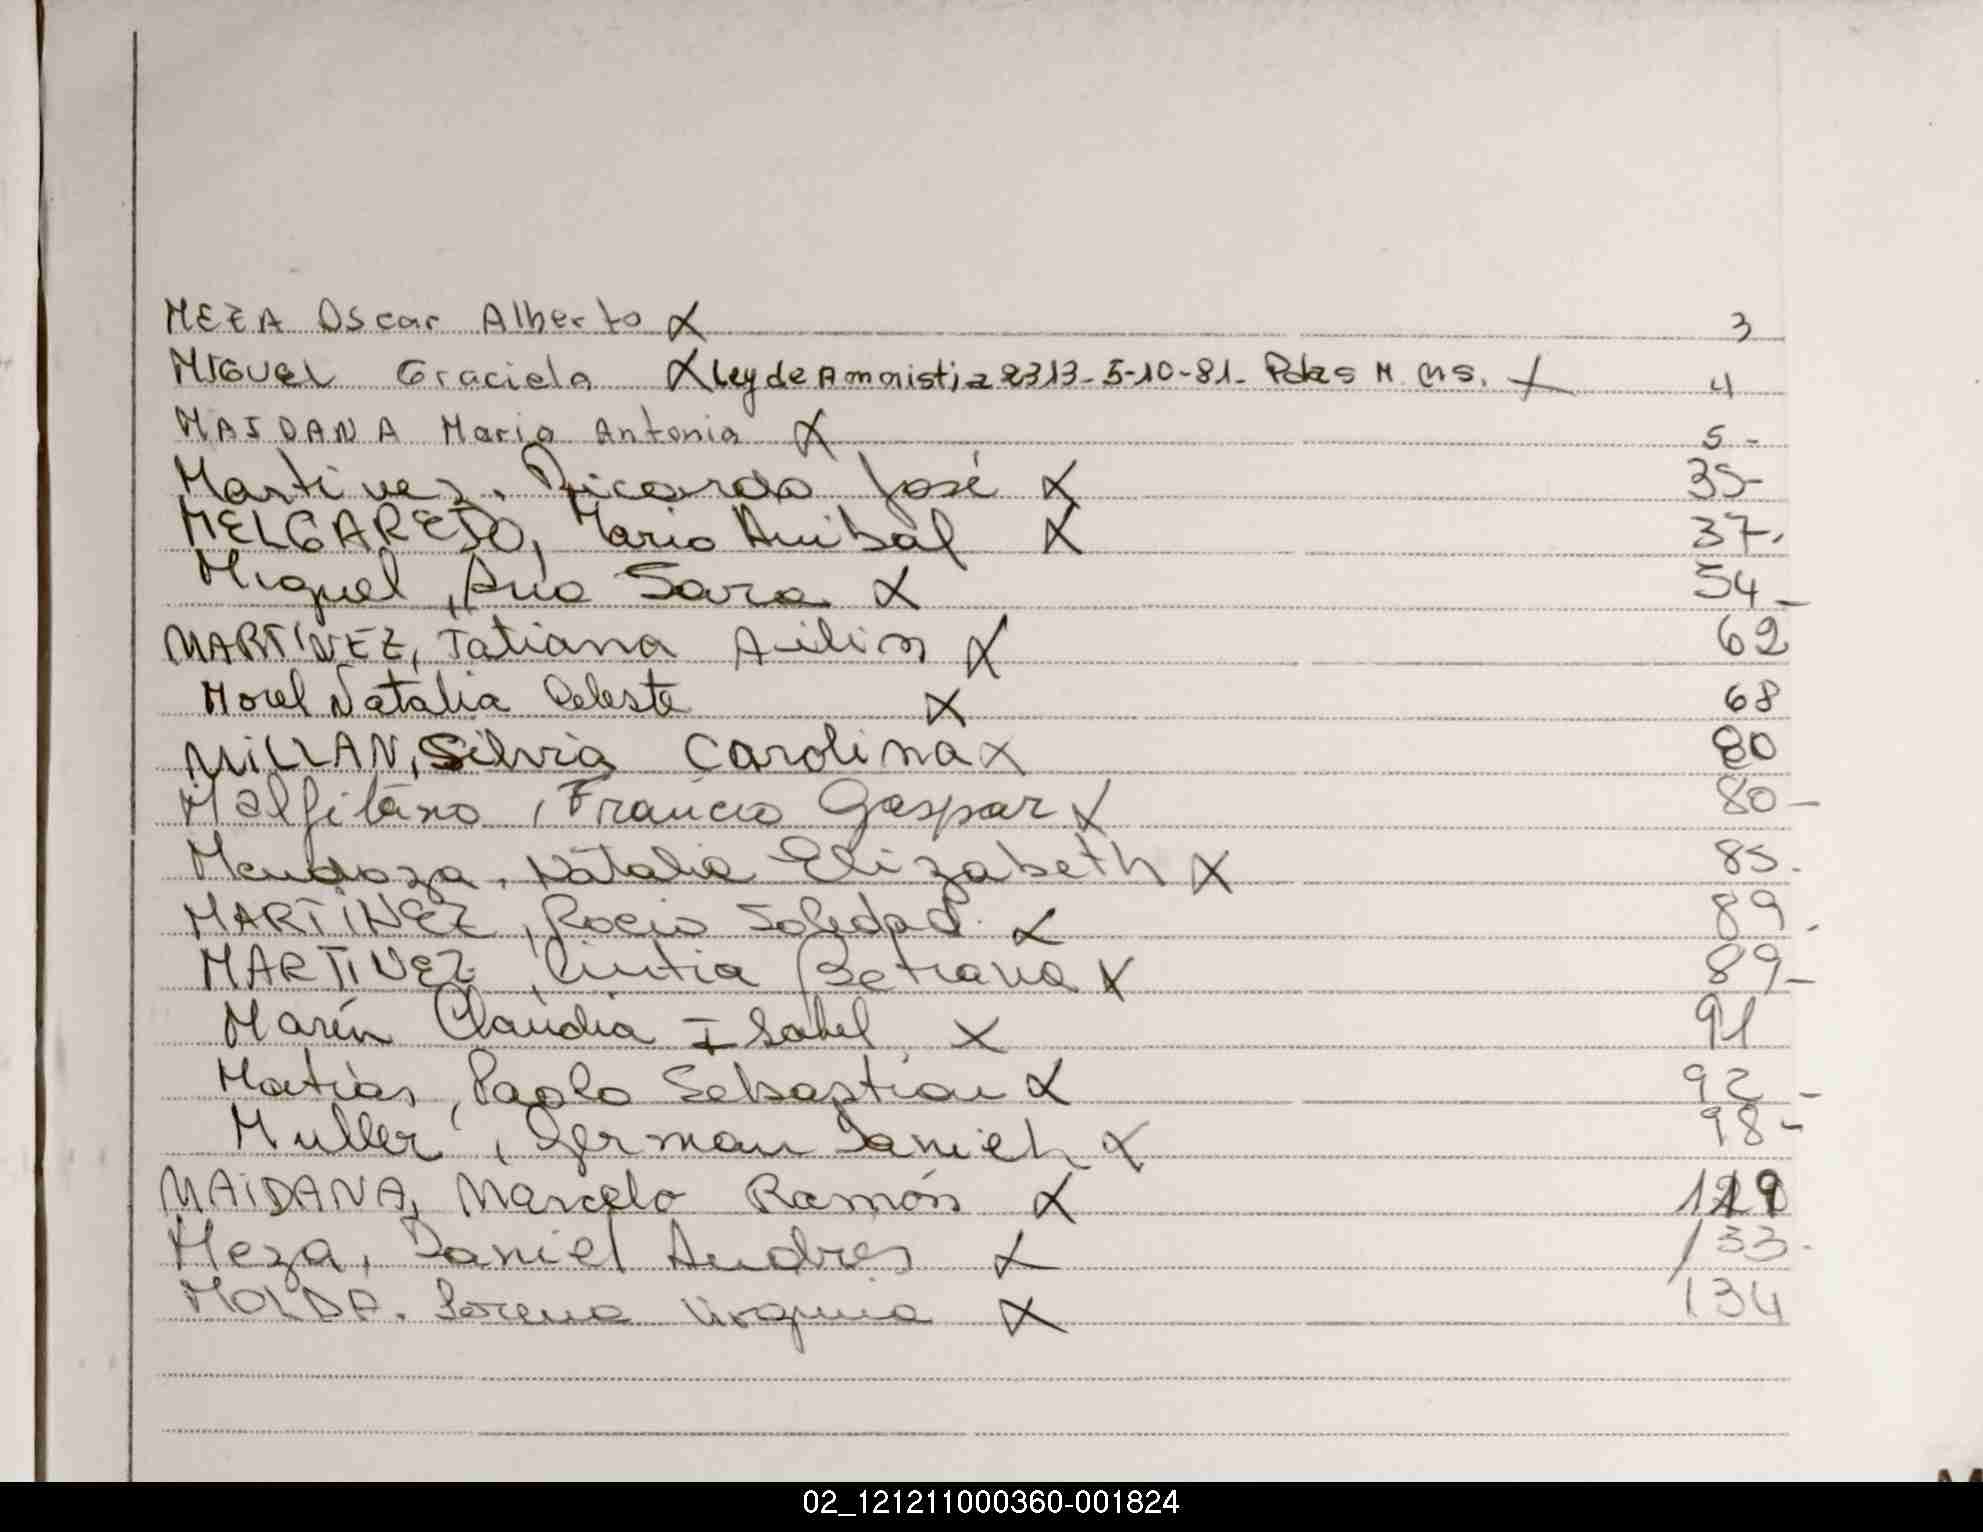 MEZA Oscar Alberto X 3
MIGUEL Graciela X Ley de Amnistia 2313-5-10-81- Pdas M. Cns. X 4
MAIDANA Maria Antonia X 5-
Martinez, Ricardo José X 35-
MELGAREJO, Mario Anibal X 37.
Miguel, Ana Sara X 54-
MARTÍNEZ, Tatiana Ailin X 62
Morel Natalia Celeste X 68
MILLAN, Silvia Carolina X 80
Malfitano, Francco Gaspar X 80-
Mendoza, Natalia Elizabeth X 85.
MARTÍNEZ, Rocio Soledad X 89.
MARTINEZ, Cintia Betiana X 89-
Marín Claudia Isabel X 91
Matias, Paolo Sebastian X 92-
Muller, German Daniel X 98-
MAIDANA, Marcelo Ramón X
Meza, Daniel Andres X 133-
MOLDA. Lorena Virginia X 134
02_121211000360-001824